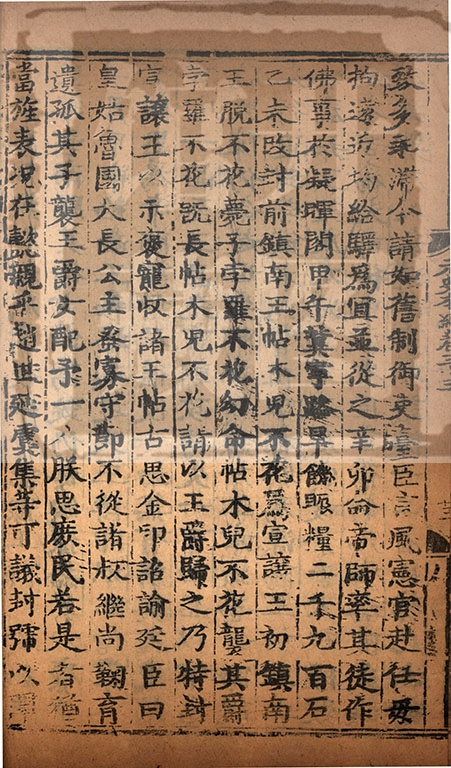 發多至滯今請如舊制御史臺臣言風憲官赴任毋
拘遠近均給驛爲宜並從之辛卯命帝師率其徒作
佛事於凝暉閣甲午冀寧路旱饑賑糧二千九百石
乙未改封前鎮南王帖木兒不花爲宣讓王初鎮南
王脫不花薨子孛羅不花幼命帖木兒不花襲其爵
孛羅不花既長帖木兒不花請以王爵歸之乃特封
宣讓王以示褒寵收諸王帖古思金印詔諭廷臣曰
皇姑魯國大長公主蚤寡守節不從諸叔繼尚鞠育
遺孤其子襲王爵女配予一人朕思庶民若是者猶
當旌表况在懿親乎趙世延虞集等可議封號以